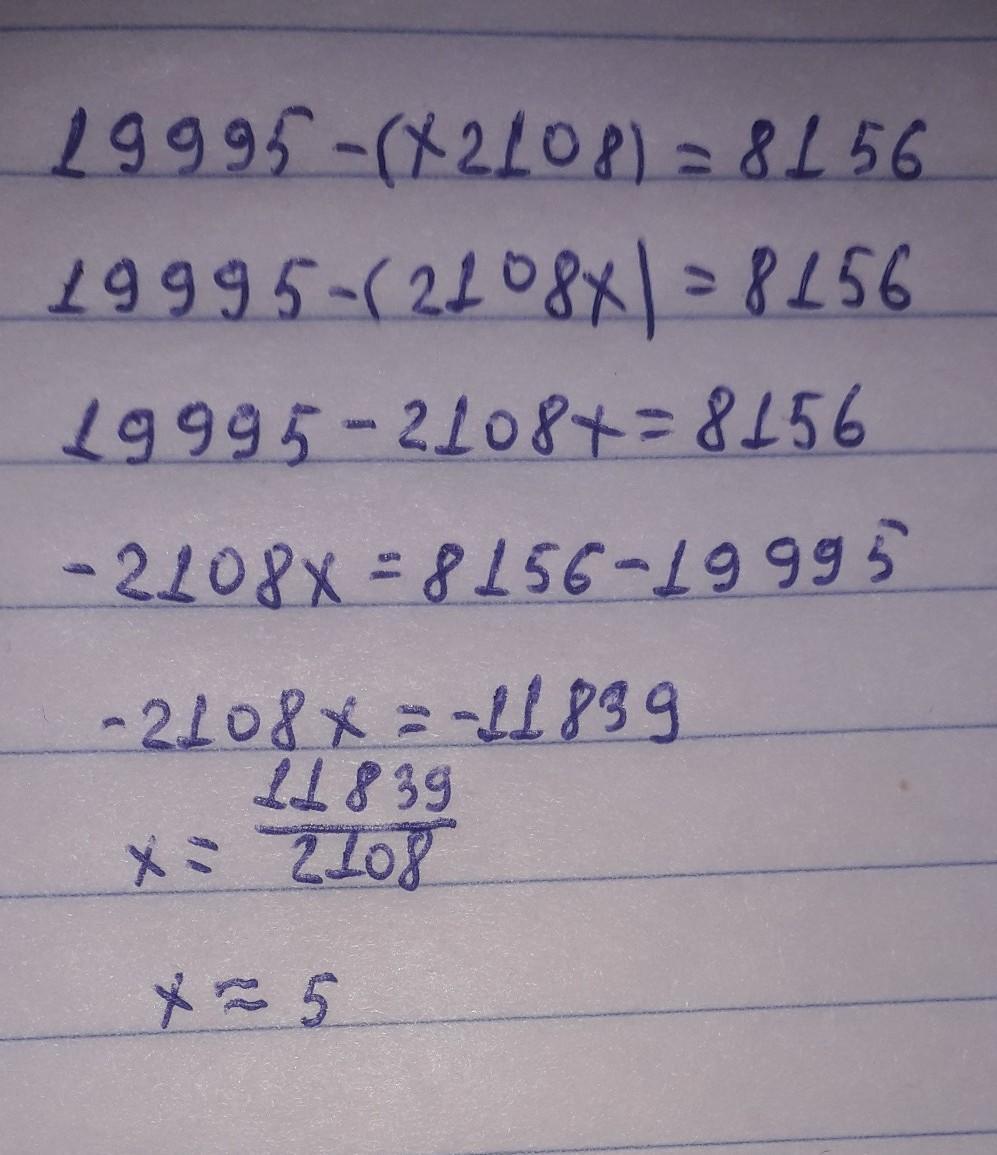 19995-(x2108)=8156
19995-(2108x)=8156
19995-2108x=8156
-2108x=8156-19995
-2108x=-11839
x=11839/2108
x≈5